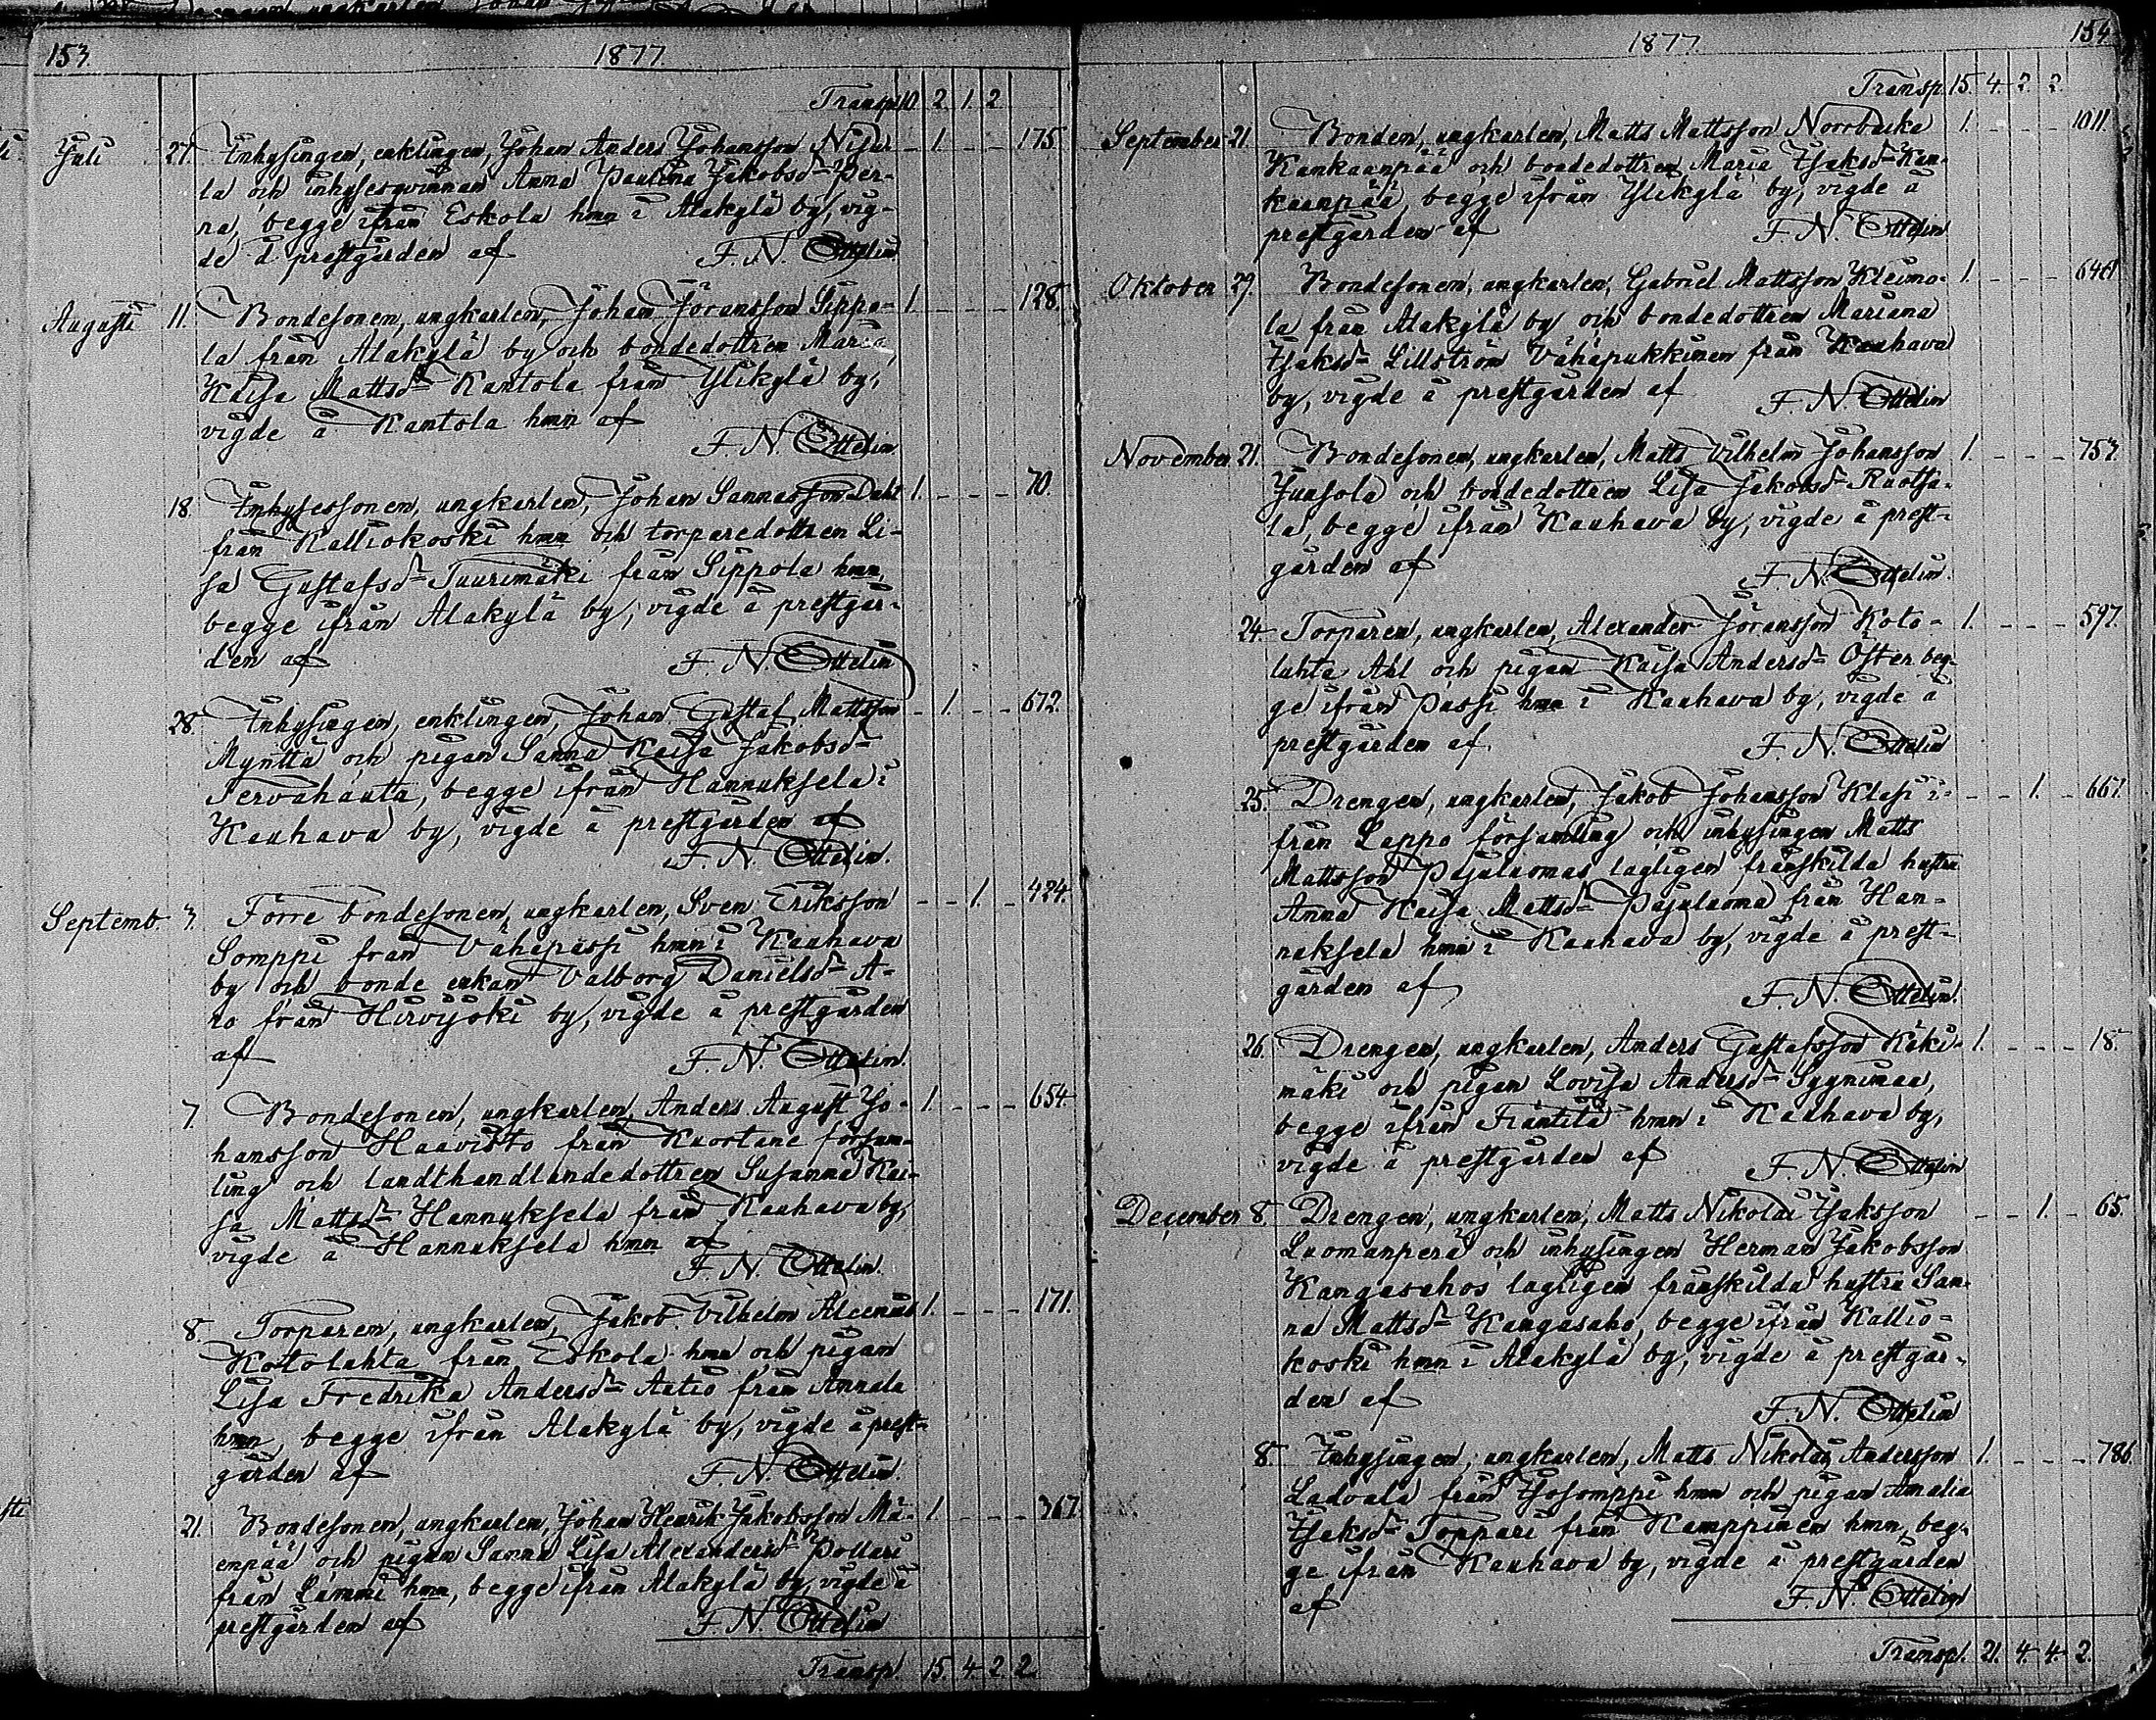 153. 1877.
Transp. 10. 2. 1. 2.
Juli 27. Inhysingen, enklingen, Johan Anders Johansson Nisu- 1. 175.
la och inhysesqvinnan Anna Paulina Jakobsd:r Per-
ra, begge ifrån Eskola hmn i Alakylä by, vig-
de å prestgården af F. N. Ottelin
Augusti 11. Bondesonen, ungkarlen, Johan Jöransson Sippo- 1. 128.
la från Alakylä by och bondedottren Maria
Kaisa Mattsd:r Kantola från Ylikylä by,
vigde å Kantola hmn af
F. N. Ottelin.
18. Inhysessonen, ungkarlen, Johan Sannasson Dahl 1. 70.
från Kalliokoski hmn och torparedottren Li-
sa Gustafsd:r Tuurimäki från Sippola hmn,
begge ifrån Alakylä by, vigde å prestgår-
den af F. N. Ottelin
28. Inhysingen, enklingen, Johan Gustaf Mattsson 1. 672.
Mynttä och pigan Sanna Kaisa Jakobsd:r
Tervahauta, begge ifrån Hannuksela i
Kauhava by, vigde å prestgården af
F. N. Ottelin.
Septemb. 3. Förre bondesonen, ungkarlen, Sven Eriksson 1. 424.
Somppi från Vähäpassi hmn i Kauhava
by och bonde enkan Valborg Danielsd:r A-
ro från Hirvijoki by, vigde å prestgården
af F. N. Ottelin.
7. Bondesonen, ungkarlen, Anders August Jo- 1. 654.
hansson Haavisto från Kuortane försam-
ling och landthandlandedottren Susanna Kai-
sa Mattsd:r Hannuksela från Kauhava by,
vigde å Hannuksela hmn af
F. N. Ottelin.
8. Torparen, ungkarlen, Jakob Vilhelm 1. 171.
Kottolahta från Eskola hmn och pigan
Lisa Fredrika Andersd:r Autio från Annala
hmn, begge ifrån Alakylä by, vigde å prest-
gården af F. N. Ottelin.
21. Bondesonen, ungkarlen, Johan Henrik Jakobsson Mä- 1. 367.
enpää och pigan Sanna Lisa Alexandersd:r Pollari
från Lammi hmn, begge ifrån Alakylä by, vigde å
prestgården af F. N. Ottelin
Transp. 15. 4. 2. 2.
1877. 154.
Transp. 15. 4. 2. 2.
September 21. Bonden, ungkarlen, Matts Mattsson Norrbacka 1. 1011.
Kankaanpää och bondedottren Maria Isaksd:r Kan-
kaanpää, begge ifrån Ylikylä by, vigde å
prestgården af F. N. Ottelin
Oktober 29. Bondesonen, ungkarlen, Gabriel Mattsson Kleimo- 1. 646.
la från Alakylä by och bondedottren Mariana
Isaksd:r Lillström Vähäpukkinen från Kauhava
by, vigde å prestgården af F. N. Ottelin
November 21. Bondesonen, ungkarlen, Matts Vilhelm Johansson 1. 757.
Juusola och bondedottren Lisa Jakobsd:r Ruotsa-
la, begge ifrån Kauhava by, vigde å prest-
gården af F. N. Ottelin.
24. Torparen, ungkarlen, Alexander Jöransson Koto- 1. 597.
luhta Ahl och pigan Kaisa Andersd:r Öster, beg-
ge ifrån Passi hmn i Kauhava by, vigde å
prestgården af F. N. Ottelin
25. Drengen, ungkarlen, Jakob Johansson Klasi i- 1. 667.
från Lappo församling och inhysingen Matts
Mattsson Pajulaomas lagligen frånskilda hustru
Anna Kaisa Mattsd:r Pajulaoma från Han-
nuksela hmn i Kauhava by, vigde å prest-
gården af F. N. Ottelin.
26. Drengen, ungkarlen, Anders Gustafsson Käki- 1. 18.
mäki och pigan Lovisa Andersd:r Sygnimaa,
begge ifrån Fräntilä hmn i Kauhava by,
vigde å prestgården af F. N. Ottelin
December 8. Drengen, ungkarlen, Matts Nikolai Isaksson 1. 65.
Luomanperä och inhysingen Herman Jakobsson
Kangasahos lagligen frånskilda hustru San-
na Mattsd:r Kangasaho, begge ifrån Kallio-
koski hmn i Alakylä by, vigde å prestgår-
den af F. N. Ottelin
8. Inhysingen, ungkarlen, Matts Nikolai Andersson 1. 786.
Ladvala från Isosomppi hmn och pigan Amalia
Isaksd:r Toppari från Kamppinen hmn, beg-
ge ifrån Kauhava by, vigde å prestgården
af F. N. Ottelin
Transp. 21. 4. 4. 2.